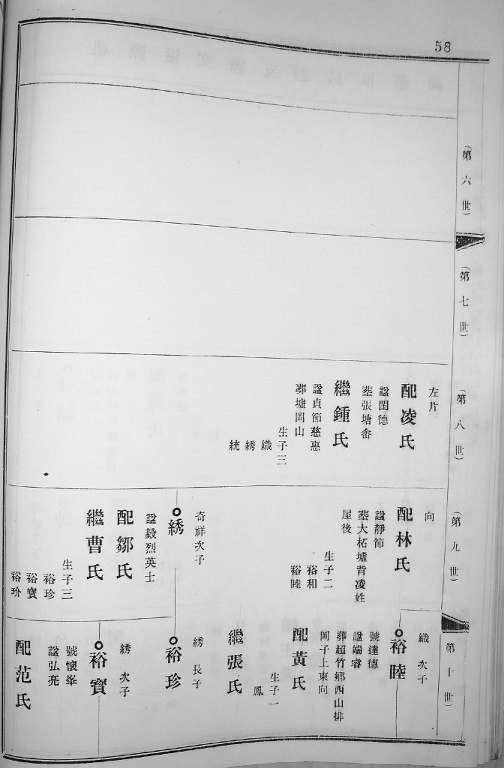 58
（第六世）
（第七世）
（第八世）
左片
配凌氏
諡閏德
葬張塘畬
繼鍾氏
諡貞節慈惠
葬墟岡山
生子三
織
綉
統
（第九世）
向
配林氏
諡靜節
葬大柘墟背凌姓
屋後
生子二
裕和
裕睦
奇祥次子
綉
諡毅烈英士
配鄒氏
繼曹氏
生子三
裕珍
裕寶
裕玠
（第十世）
織次子
裕睦
號達德
諡端睿
葬超竹鄉西山排
岡子上東向
配黃氏
生子一
鳳
繼張氏
綉長子
裕珍
綉次子
裕寶
號懷峯
諡弘亮
配范氏